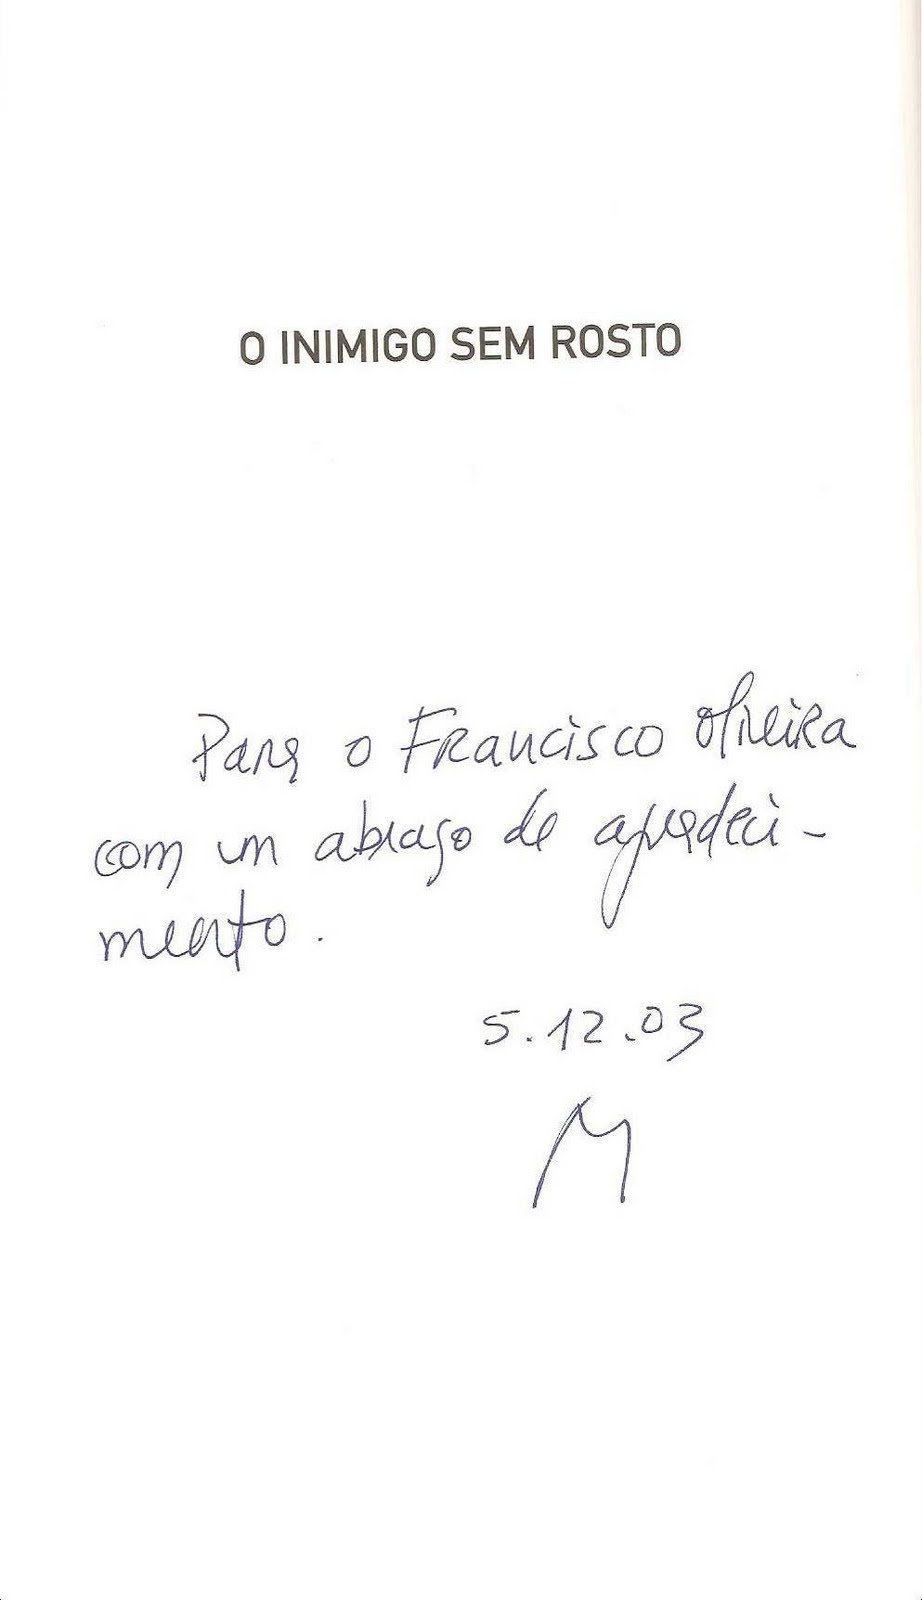 O INIMIGO SEM ROSTO
Para o Francisco Oliveira
com um abraço de agradeci-
mento.
5.12.03
M